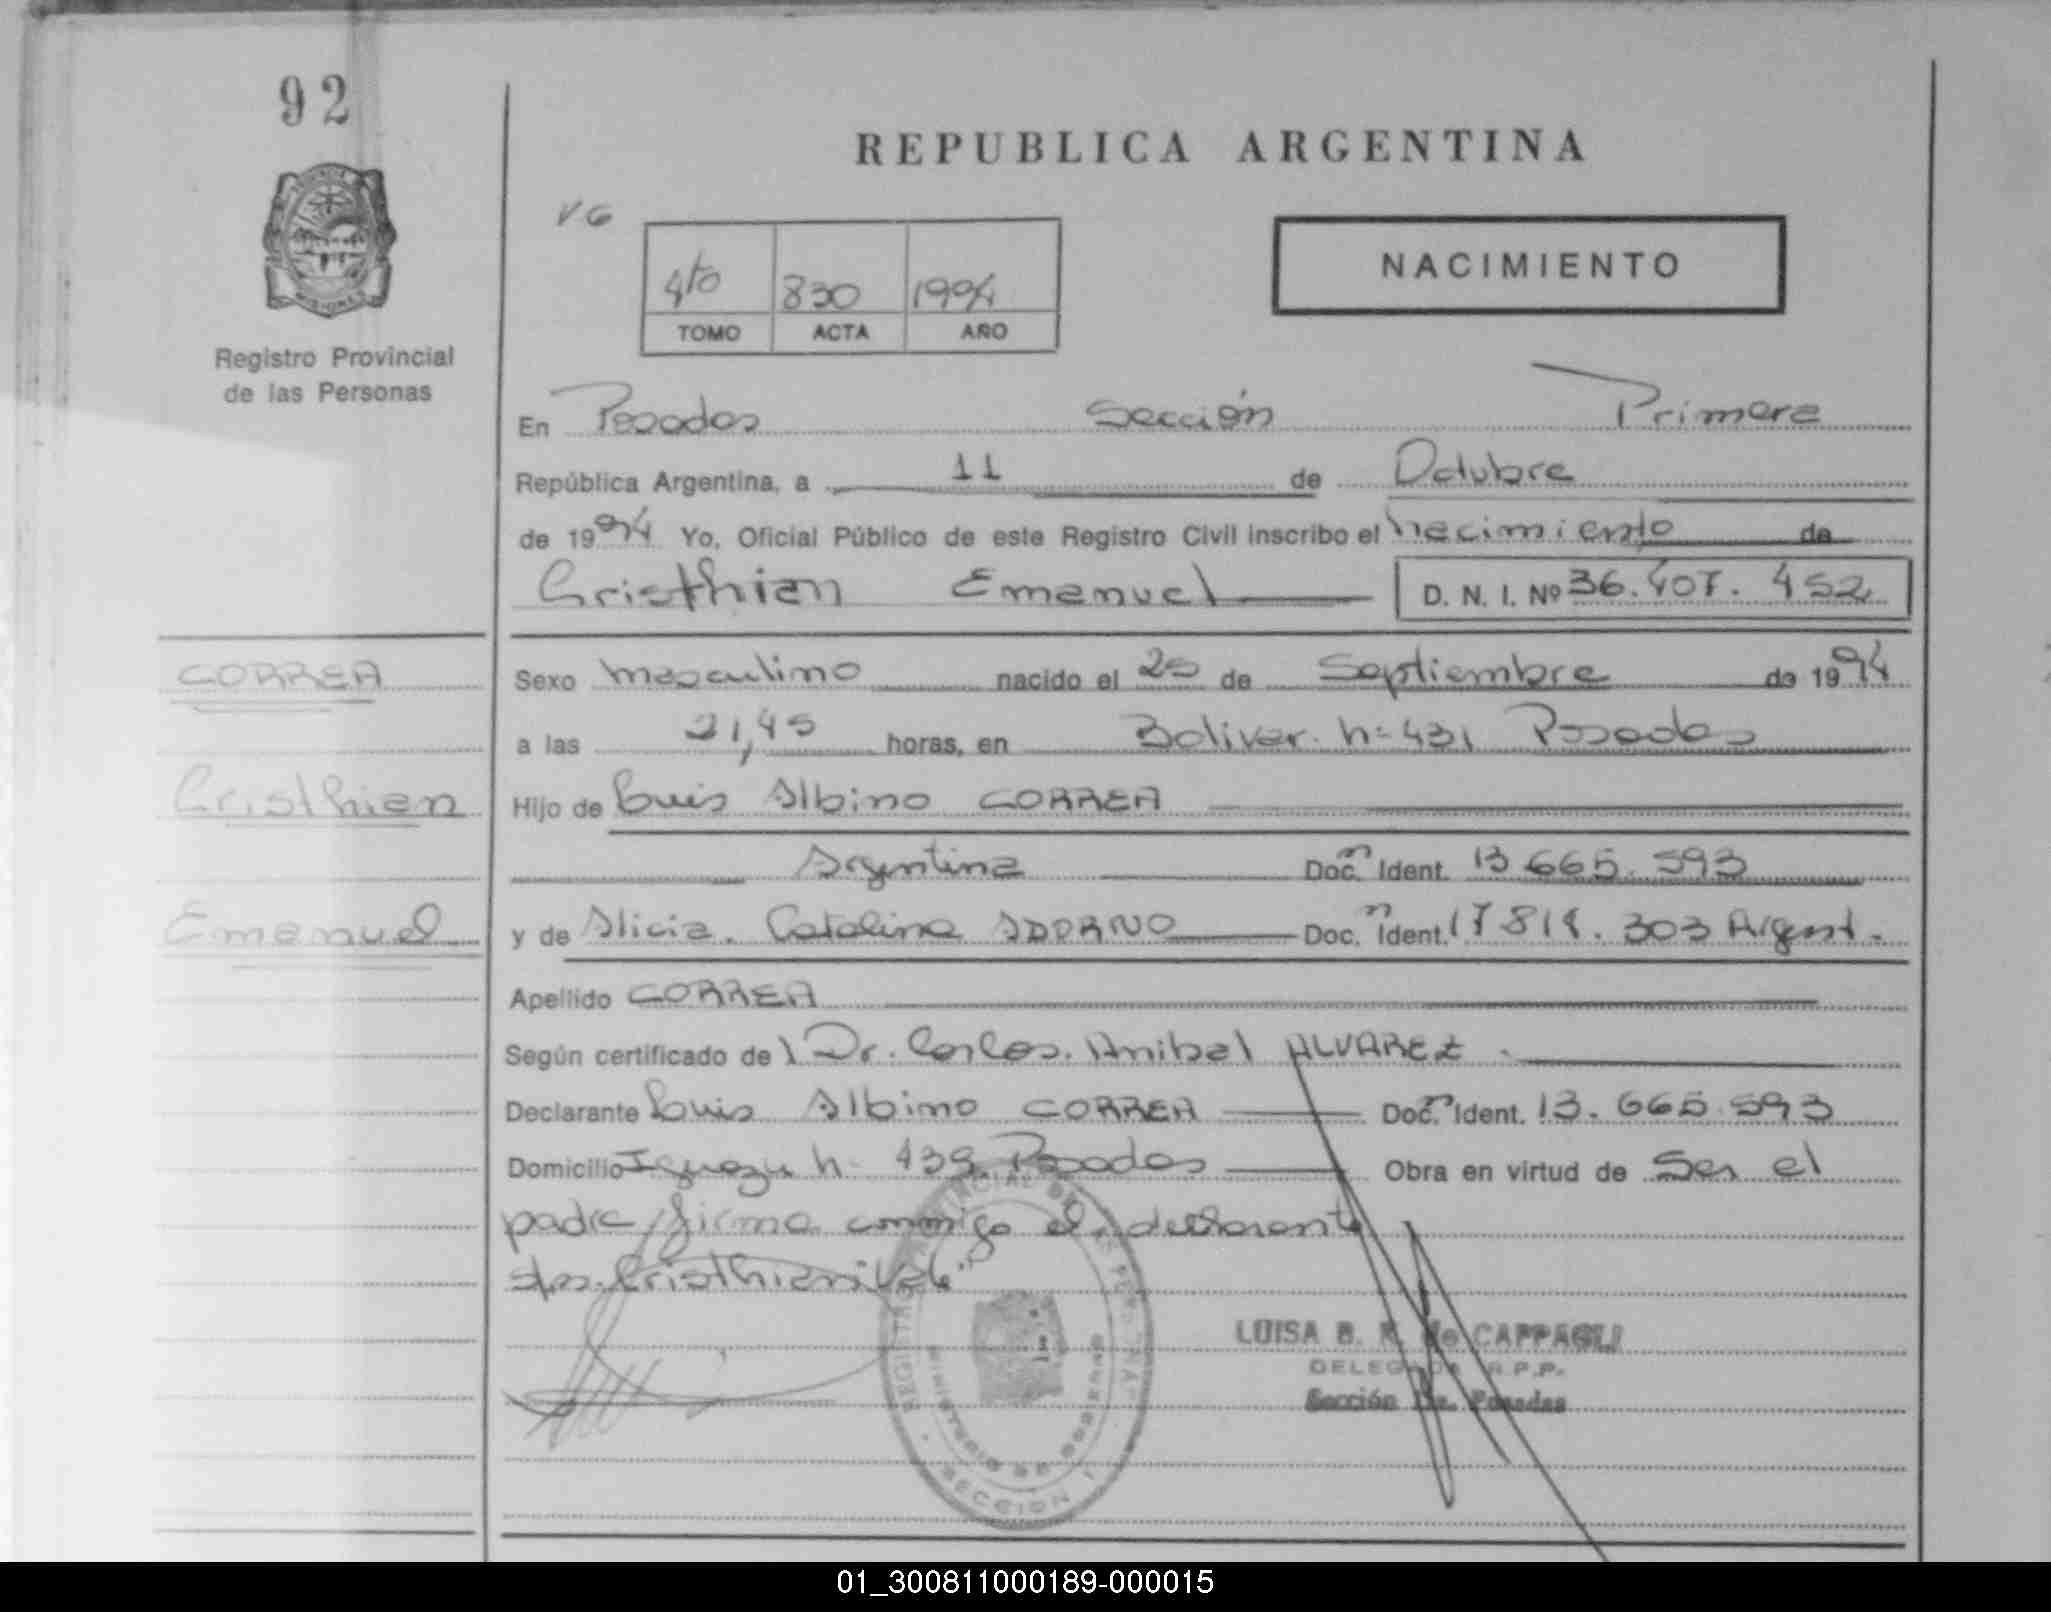 92
REPUBLICA ARGENTINA
VG
NACIMIENTO
4to 830 1994
TOMO ACTA AÑO
Registro Provincial
de las Personas
En Posadas Sección Primera
República Argentina, a 11 de Octubre
de 1994 Yo, Oficial Público de este Registro Civil inscribo el nacimiento de
Cristhian Emanuel D. N. I. Nº 36.407.452
CORREA
Sexo masculino nacido el 25 de Septiembre de 1994
a las 21,45 horas, en Bolivar nº 431 Posadas
Cristhian
Hijo de Luis Albino CORREA
Argentina Doc. Ident. 13.665.593
Emanuel
y de Alicia Catalina ADORNO Doc. Ident. 17.818.303 Argent.
Apellido CORREA
Según certificado del Dr. Carlos Anibal ALVAREZ
Declarante Luis Albino CORREA Doc. Ident. 13.665.593
Domicilio Iguazu nº 439 Posadas Obra en virtud de Ser el
padre, firma conmigo el declarante
Cristhian
LUISA B. R. de CAPPAGLI
DELEGADA R.P.P.
Sección 1a. Posadas
REGISTRO PROVINCIAL DE LAS PERSONAS
MINISTERIO DE GOBIERNO
SECCION 1
01_300811000189-000015